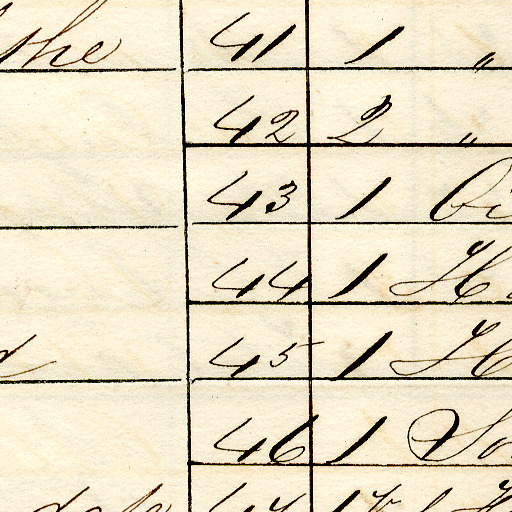 the 41 1 "
42 2 "
43 1
44 1 H
45 1 H
46 1 So